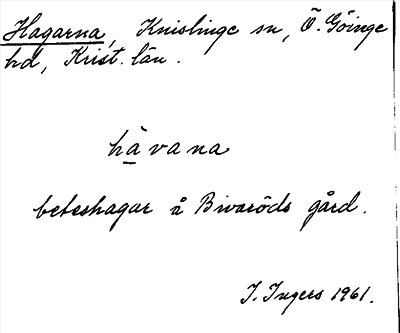 Hagarna, Knislinge sn, Ö. Göinge
hd, Krist. län.
hàvana
beteshagar å Bivaröds gård.
I. Ingers 1961.